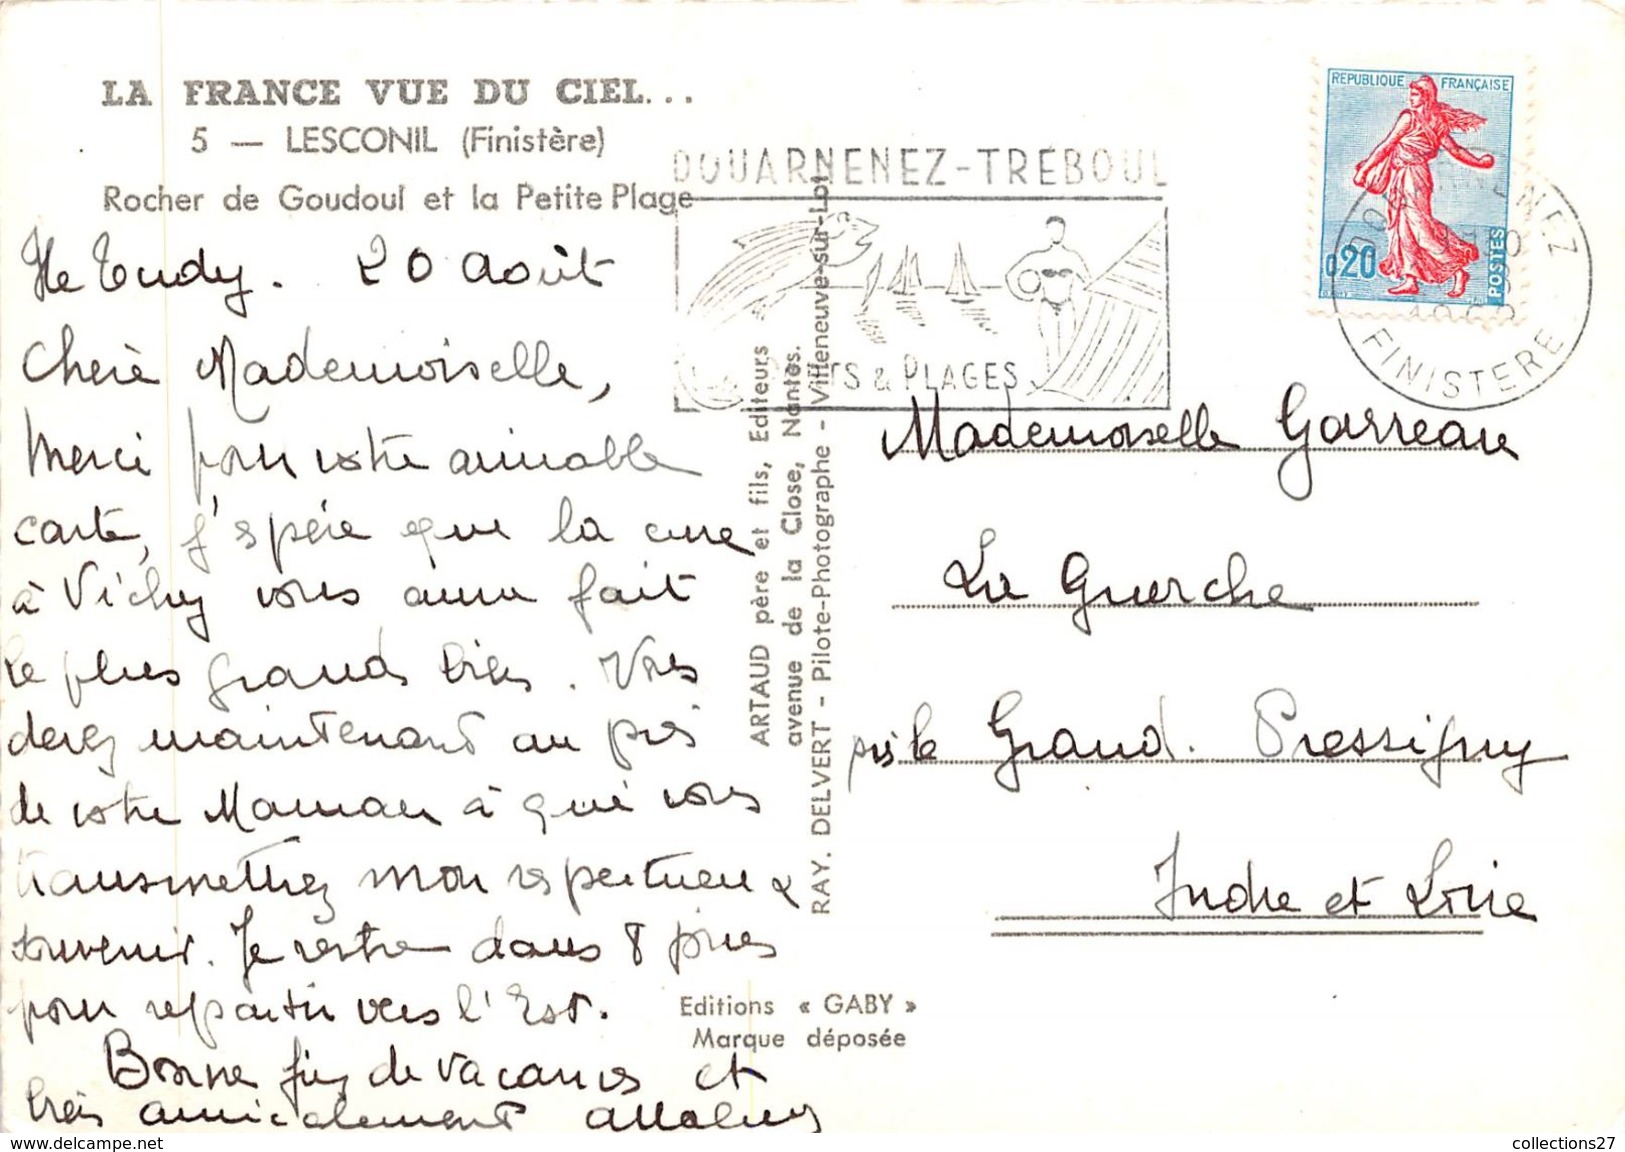 LA FRANCE VUE DU CIEL...
5 — LESCONIL (Finistère)
Rocher de Goudoul et la Petite Plage
Ile Tudy. 20 Août
Chère Mademoiselle,
Merci pour votre aimable
carte, j'espère que la cure
à Vichy vous aura fait
le plus grand bien. Vous
devez maintenant au près
de votre Maman à qui vous
transmettrez mon respectueux
souvenir. Je rentre dans 8 jours
pour repartir vers l'Est.
Bonne fin de vacances et
très amicalement
DOUARNENEZ-TRÉBOUL
PORTS & PLAGES
ARTAUD père et fils, Editeurs
avenue de la Close, Nantes.
RAY. DELVERT - Pilote-Photographe - Villeneuve-sur-Lot
Editions « GABY »
Marque déposée
REPUBLIQUE FRANÇAISE
0,20
POSTES
DOUARNENEZ
FINISTERE
Mademoiselle Garreau
La Guerche
près le Grand. Pressigny
Indre et Loire
www.delcampe.net
collections27